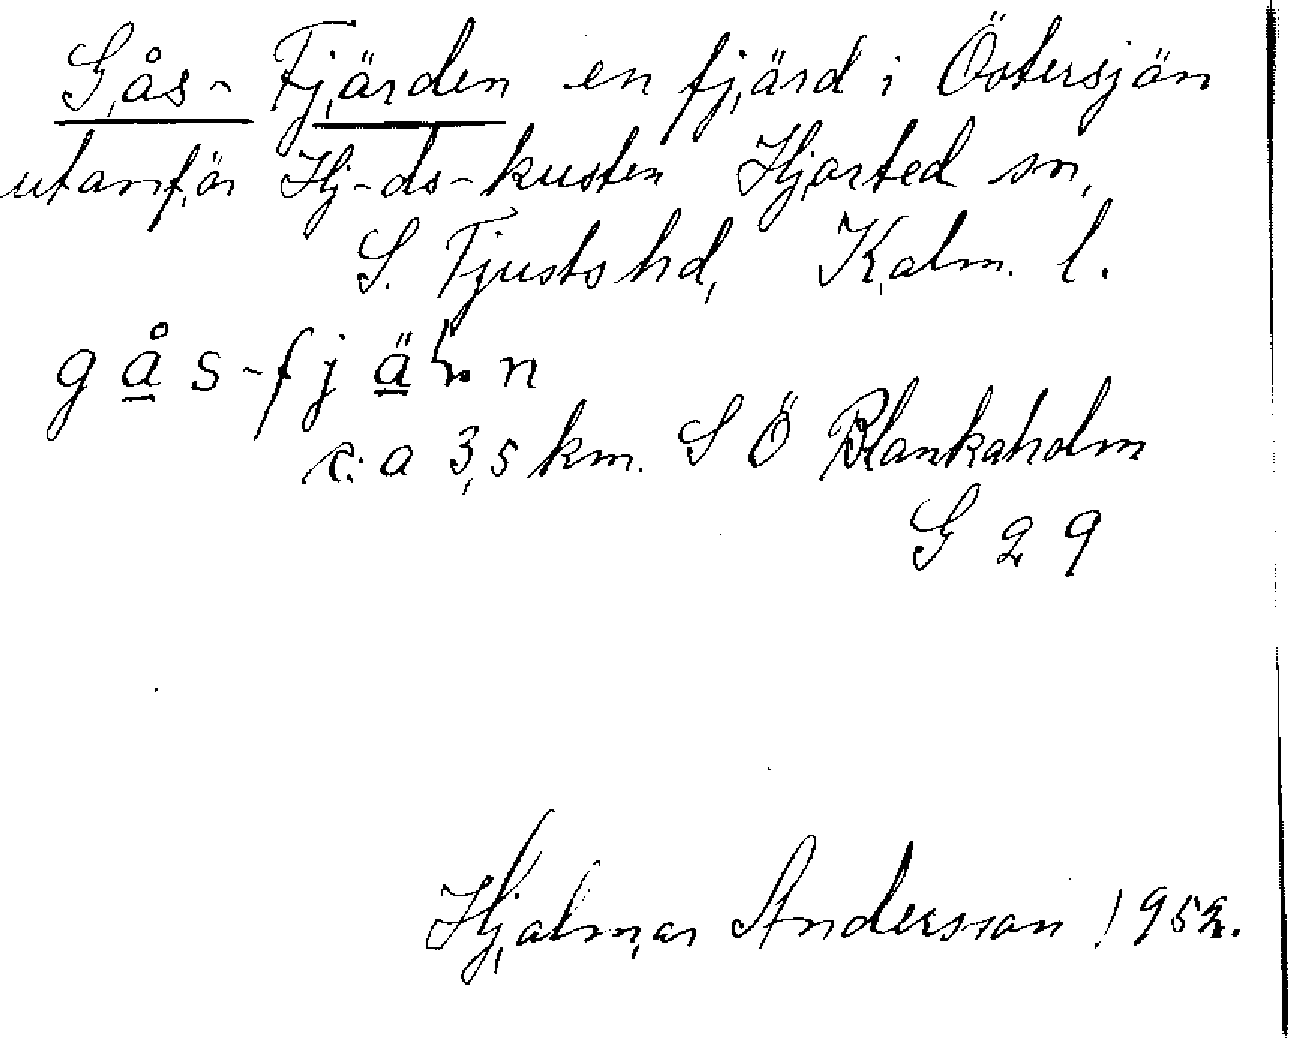 Gås-Fjärden en fjärd i Östersjön
utanför Hj-ds-kusten Hjorted sn,
S. Tjusts hd, Kalm. l.
gås-fjän
c:a 3,5 km. S Ö Blankaholm
G 29
Hjalmar Andersson 1952.